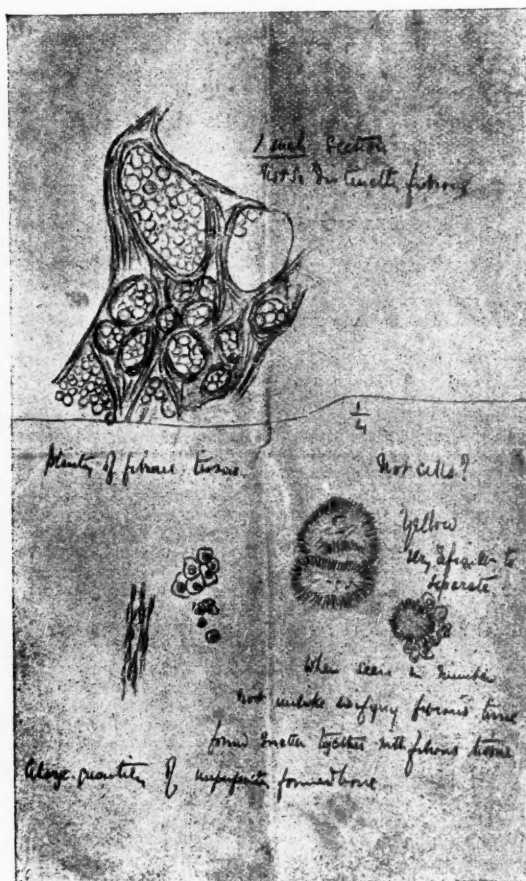 1 inch Section
Not so distinctly fibrous
1/4
Plenty of fibrous tissue.
Not cells?
Yellow
very difficult to
separate
When seen in number
not unlike fibrous tissue
formed matter together with fibrous tissue
A large quantity of imperfectly formed bone